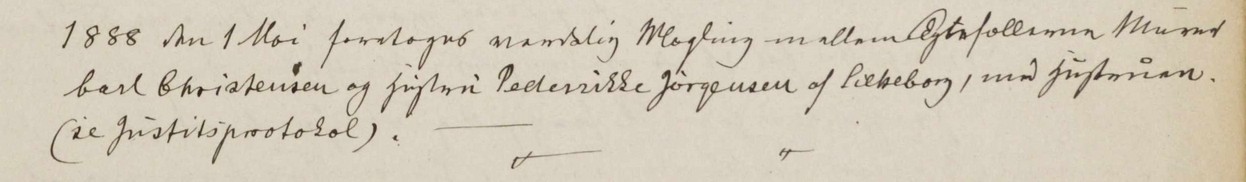 1888 den 1 Mai foretoges verdslig Mægling mellem Ægtefællerne Murer
Carl Christensen og Hustru Pedersikke Jörgensen af Silkeborg, med Hustruen.
(se Justitsprotokol). —
〃 — 〃